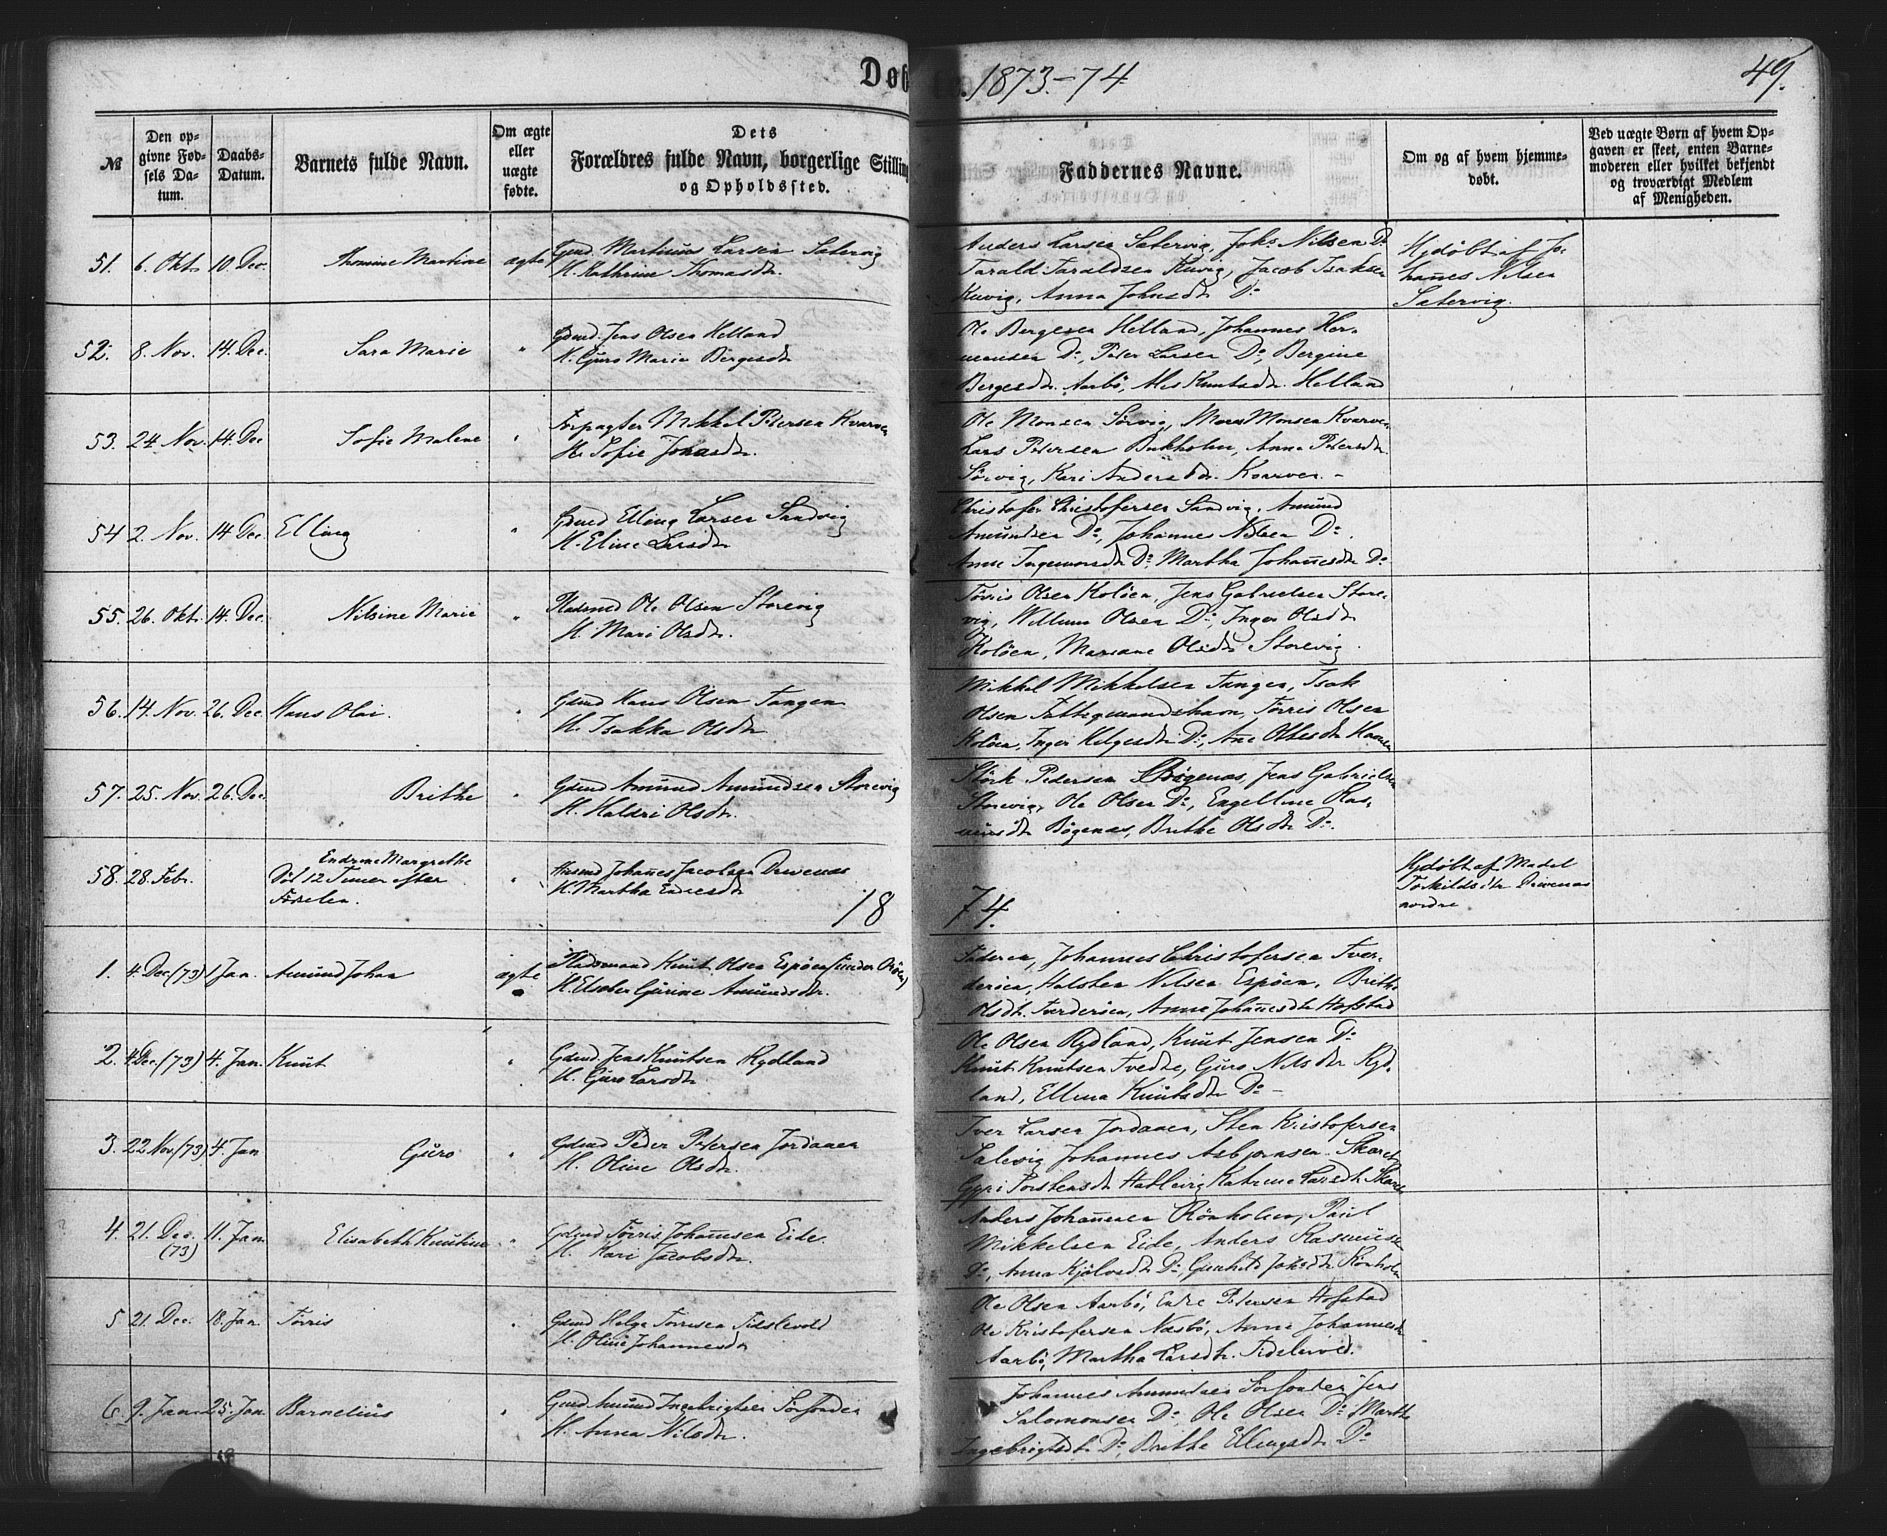 Døb
e. 1873-74
49.
№
Den opgivne Fødsels Datum.
Daabs-Datum.
Barnets fulde Navn.
Om ægte eller uægte fødte.
Dets Forældres fulde Navn, borgerlige Stilling og Opholdssted.
Faddernes Navne.
Om og af hvem hjemmedøbt.
Ved uægte Børn af hvem Opgaven er skeet, enten Barnemoderen eller hvilket bekjendt og troværdigt Medlem af Menigheden.
51. 6. Okt. 10 Dec. Thomine Martine ægte Gmd Martinus Larsen Satervig
H. Kathrine Thomasdtr.
Anders Larsen Satervig, Johs Nilsen Do
Tarald Taraldsen Kuvig, Jacob Isaksen
Kuvig, Anna Johnsdtr Do
Hjdøbt af Jo-
hannes Nilsen
Satervig.
52. 8. Nov. 14. Dec. Sara Marie " Gdmd. Jens Olsen Helland
H. Guro Marie Børgesdtr
Ole Bergesen Helland, Johannes Her-
mansen Do, Peder Larsen Do, Bergine
Bergesdtr. Aarbø, Ales Knutsdtr. Helland
53. 24 Nov. 14. Dec Sofie Malene " Forpagter Mikkel Petersen Kvarven
H. Sofie Johnsdtr.
Ole Monsen Sørvig, Mons Monsen Kvarven
Lars Petersen Bukholm, Anna Petersdtr
Sørvig, Kari Andersdtr. Kvarven. -
54 2. Nov. 14 Dec. Elling " Gdmd Elling Larsen Sandvig
H. Eline Larsdtr
Christofer Christofersen Sandvig, Amund
Amundsen Do, Johannes Nilsen Do.
Anne Ingemorsdtr Do Martha Johannesdtr Do
55. 26. Okt. 14. Dec. Nilsine Marie " Pladsmd Ole Olsen Storevig
H. Mari Olsdtr.
Tørris Olsen Koløen, Jens Gabrielsen Store-
vig, Willum Olsen Do, Inger Olsdtr
Koløen, Mariane Olsdtr Storevig.
56. 14. Nov. 26. Dec. Hans Olai. " Gdmd Hans Olsen Tangen
H. Isakka Olsdtr.
Mikkel Mikkelsen Tangen, Isak
Olsen Fattigmandshavn, Tørris Olsen
Koløen, Inger Helgesdtr Do, Ane Olsdtr
57. 25. Nov. 26. Dec. Brithe " Gdmd Amund Amundsen Storevig
H. Haldri Olsdtr.
Størk Pedersen Bøgenæs, Jens Gabrielsen
Storevig, Ole Olsen Do, Engeline Ras-
musdtr Bøgenæs, Brithe Olsdtr Do.
58. 28. Feb. Endrine Margrethe
Død 12 Timer efter
Fødselen.
" Husmd Johannes Jacobsen Drivenæs
H. Martha Endresdtr
Hjdøbt af Madel
Torkildsdtr Drivenæs
nordre
1874.
1. 4. Dec. (73) 1 Jan. Amund Johan ægte Pladsmand Knut Olsen Espøen (under Oxøen)
H. Elsebet Gurine Amundsdtr.
Faderen, Johannes Christofersen Tver-
derøen, Halsten Nilsen Espøen, Brithe
Olsdtr. Tverderøen, Anne Johannesdtr Hofstad
2. 4 Dec. (73) 4. Jan. Knut " Gdmd. Jens Knutsen Rydland
H. Guro Larsdtr.
Ole Olsen Rydland, Knut Jensen Do
Knut Knutsen Tvedte, Guro Nilsdtr Ryd-
land, Ellena Knutsdtr Do -
3. 22 Nov. (73) 4. Jan Guro " Gdmd Peder Petersen Jordanen
H. Oline Olsdtr.
Iver Larsen Jordanen, Sten Kristofersen
Salevig Johannes Asbjørnsen Skaret
Gyri Torstensdtr Hatlevig Katrine Larsdtr Skaret
4. 21. Dec. (73) 11. Jan. Elisabeth Knutine " Gdmd Tørris Johannesen Eide.
H. Kari Jacobsdtr.
Anders Johannesen Rønholm, Paul
Mikkelsen Eide, Anders Rasmusen
Do, Anna Kjølvsdtr Do, Gunhild Johsdtr Rønholm
5 21. Dec. 18. Jan. Tørris " Gdmd Helge Tørrisen Tidslevold
H. Oline Johannesdtr
Ole Olsen Aarbø, Endre Petersen Hofstad
Ole Kristofersen Næsbø, Anne Johannesdtr
Aarbø, Martha Larsdtr.
6. 9. Jan. 25. Jan Barnelius " Gmd Amund Ingebrigtsen Sørfonden
H. Anna Nilsdtr.
Johannes Amundsen Sørfonden Jens
Salomonsen Do, Ole Olsen Do, Martha
Ingebrigtsdtr Do Brithe Ellingsdtr Do